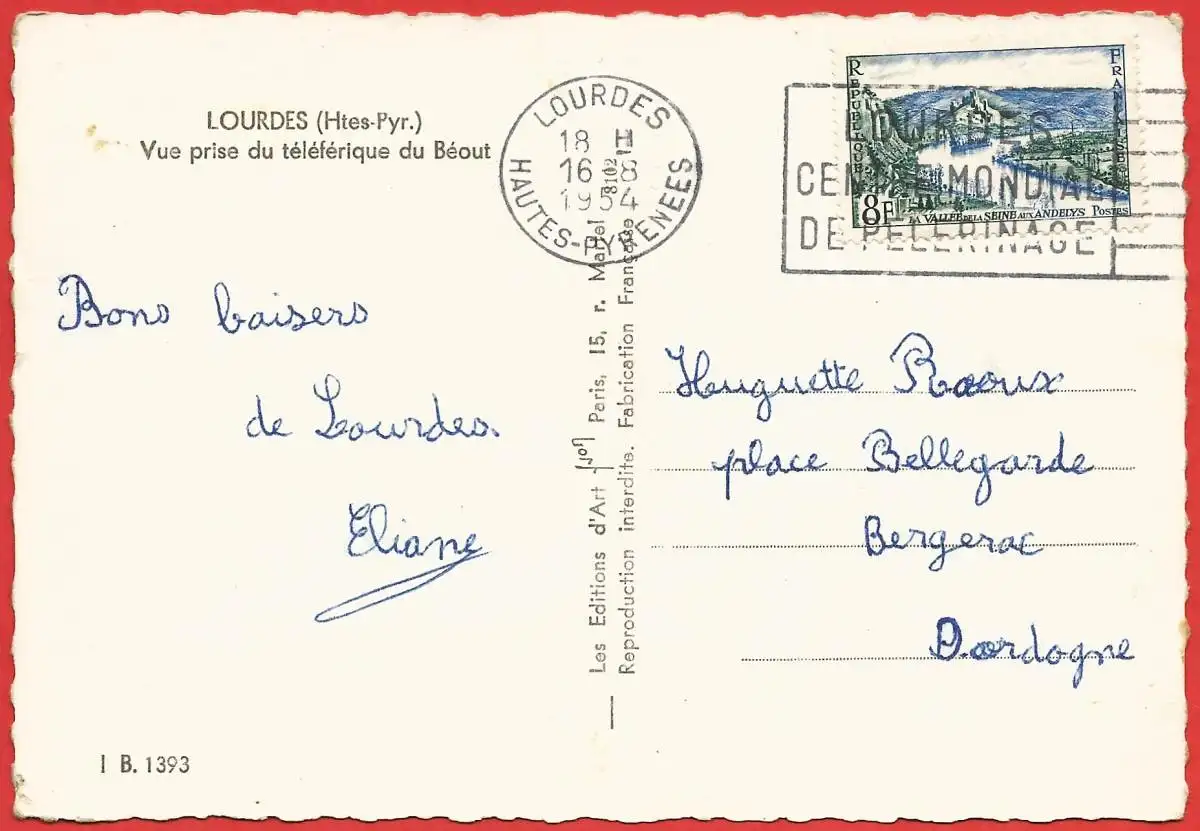 LOURDES (Htes-Pyr.)
Vue prise du téléférique du Béout
Bons baisers
de Lourdes.
Eliane
I B. 1393
Les Editions d'Art Yvon Paris, 15, r. Martel
Reproduction interdite. Fabrication Française
8102
LOURDES
18 H
16 - 8
1954
HAUTES-PYRENEES
LOURDES
CENTRE MONDIAL
DE PELERINAGE
REPUBLIQUE
FRANÇAISE
8F
LA VALLEE DE LA SEINE AUX ANDELYS POSTES
Huguette Raoux
place Bellegarde
Bergerac
Dordogne